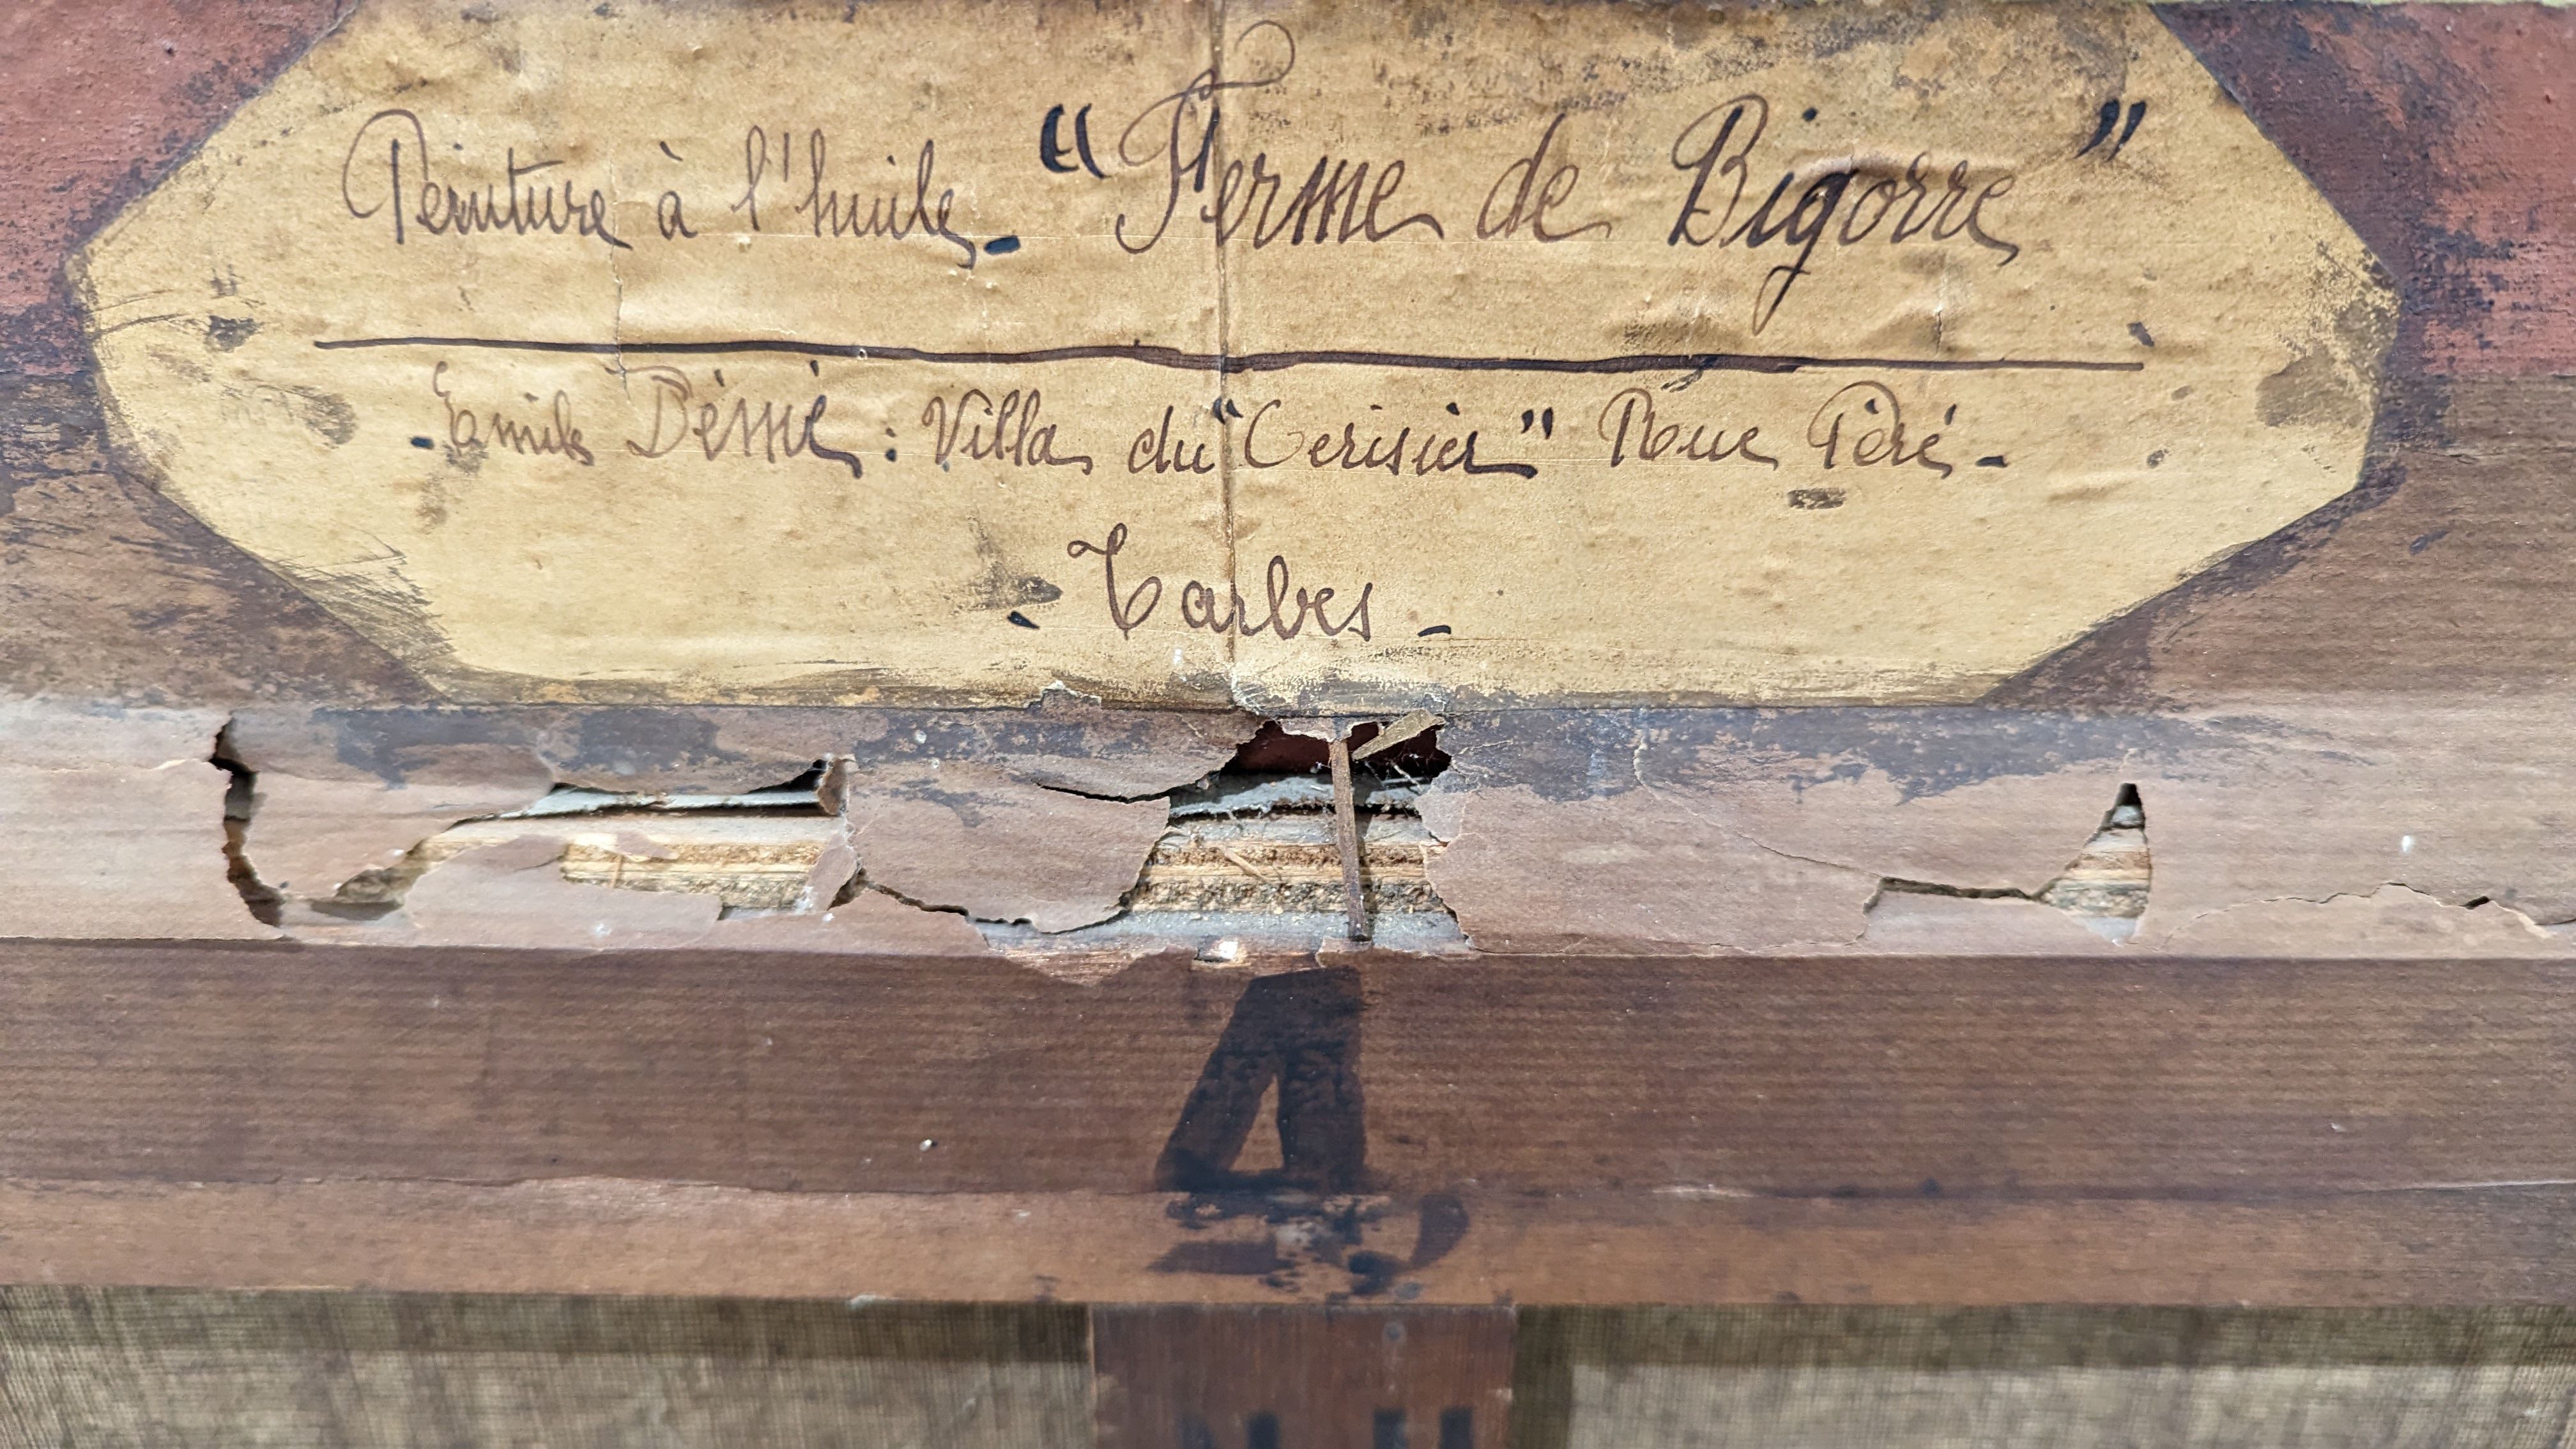 Peinture à l'huile - "Ferme de Bigorre"
- Emile Bémé : Villa du "Cerisier" Rue Péré -
- Tarbes -
4